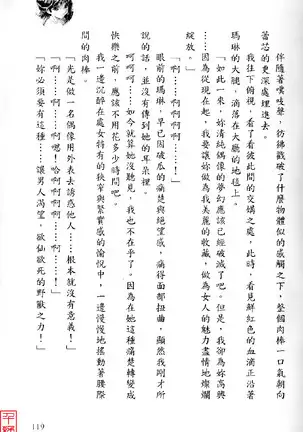 伴隨著噗嘰聲,彷彿戳破了什麼物體似的感觸之下,整個肉棒一口氣朝向
蕾芯的更深處埋進去。
我往下俯視,看了看彼此間的交媾之處,此時,看見鮮紅色的血滴正沿著
瑪琳的大腿,滴落在大廳的地毯上。
「如此一來,妳清純偶像的夢幻應該已經破滅了吧。但是,我卻為妳高興
……因為從現在起,我要讓妳做為我美麗的收藏,做為女人的魅力盡情地燦爛
綻放。」
「啊……啊啊啊……!」
眼前的瑪琳,早已因破瓜的痛楚與絕望感,痛得面部扭曲,顯然我剛才所
說的話,並沒有傳到她的耳朵裡。
呵呵呵……如今就算她沒聽見,我也不在乎了。因為在她這種痛楚轉變成
快樂之前,應該不用花多少時間吧。
我一邊沉醉在處女特有的狹窄與緊實感的愉悅中,一邊慢慢地搖動著腰際
間的肉棒。
「光是做一名偶像用外表去誘惑他人……根本就沒有意義!」
「啊啊……啊……嗯!哈啊啊……啊……!」
「妳必須要有這種……讓男人渴望,欲仙欲死的野獸之力!」
119